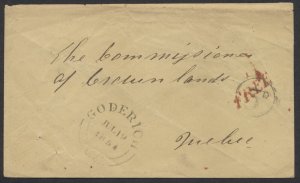 The Commissioner
of Crown lands
Quebec
GODERICH
JUL 19
1854
FREE